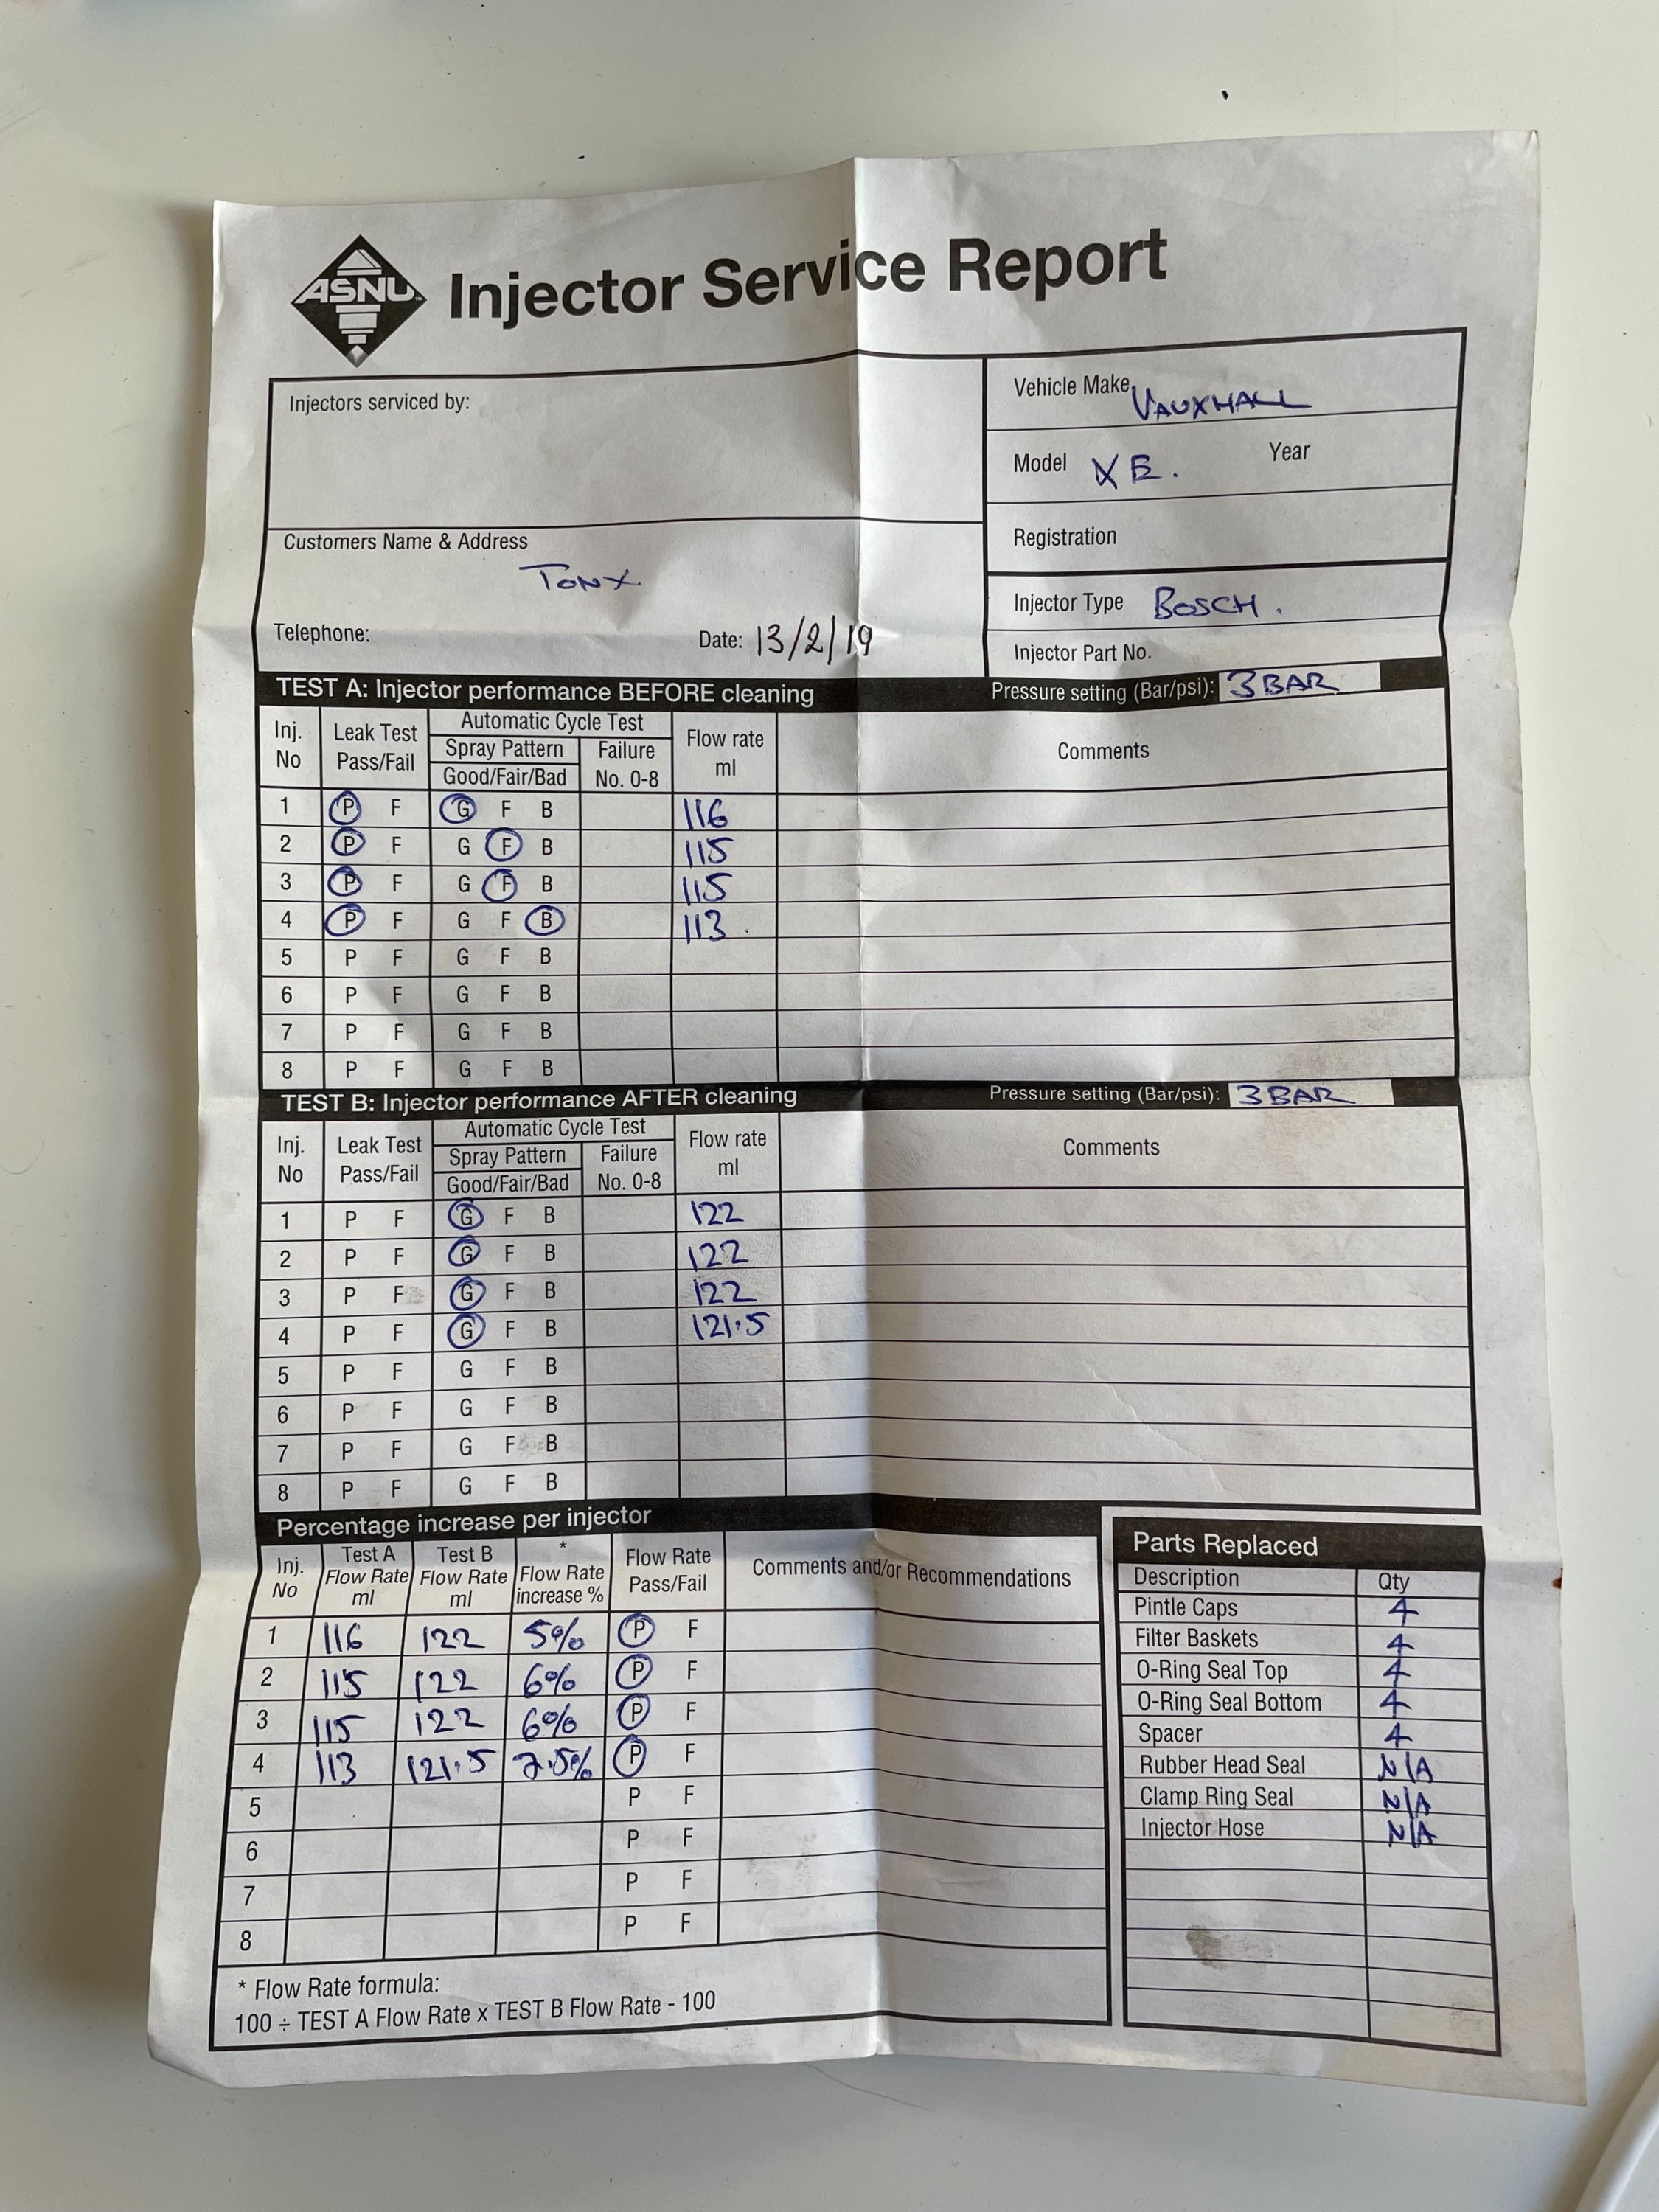 ASNU
Injector Service Report
Injectors serviced by:
Vehicle Make VAUXHALL
Model XE. Year
Registration
Customers Name & Address
TONY
Injector Type BOSCH.
Telephone: Date: 13/2/19
Injector Part No.
TEST A: Injector performance BEFORE cleaning Pressure setting (Bar/psi): 3 BAR
Inj. No Leak Test Pass/Fail Automatic Cycle Test Spray Pattern Good/Fair/Bad Failure No. 0-8 Flow rate ml Comments
1 P F G F B 116
2 P F G F B 115
3 P F G F B 115
4 P F G F B 113.
5 P F G F B
6 P F G F B
7 P F G F B
8 P F G F B
TEST B: Injector performance AFTER cleaning Pressure setting (Bar/psi): 3 BAR
Inj. No Leak Test Pass/Fail Automatic Cycle Test Spray Pattern Good/Fair/Bad Failure No. 0-8 Flow rate ml Comments
1 P F G F B 122
2 P F G F B 122
3 P F G F B 122
4 P F G F B 121.5
5 P F G F B
6 P F G F B
7 P F G F B
8 P F G F B
Percentage increase per injector
Inj. No Test A Flow Rate ml Test B Flow Rate ml * Flow Rate increase % Flow Rate Pass/Fail Comments and/or Recommendations
1 116 122 5% P F
2 115 122 6% P F
3 115 122 6% P F
4 113 121.5 7.5% P F
5 P F
6 P F
7 P F
8 P F
* Flow Rate formula:
100 ÷ TEST A Flow Rate x TEST B Flow Rate - 100
Parts Replaced
Description Qty
Pintle Caps 4
Filter Baskets 4
O-Ring Seal Top 4
O-Ring Seal Bottom 4
Spacer 4
Rubber Head Seal N/A
Clamp Ring Seal N/A
Injector Hose N/A